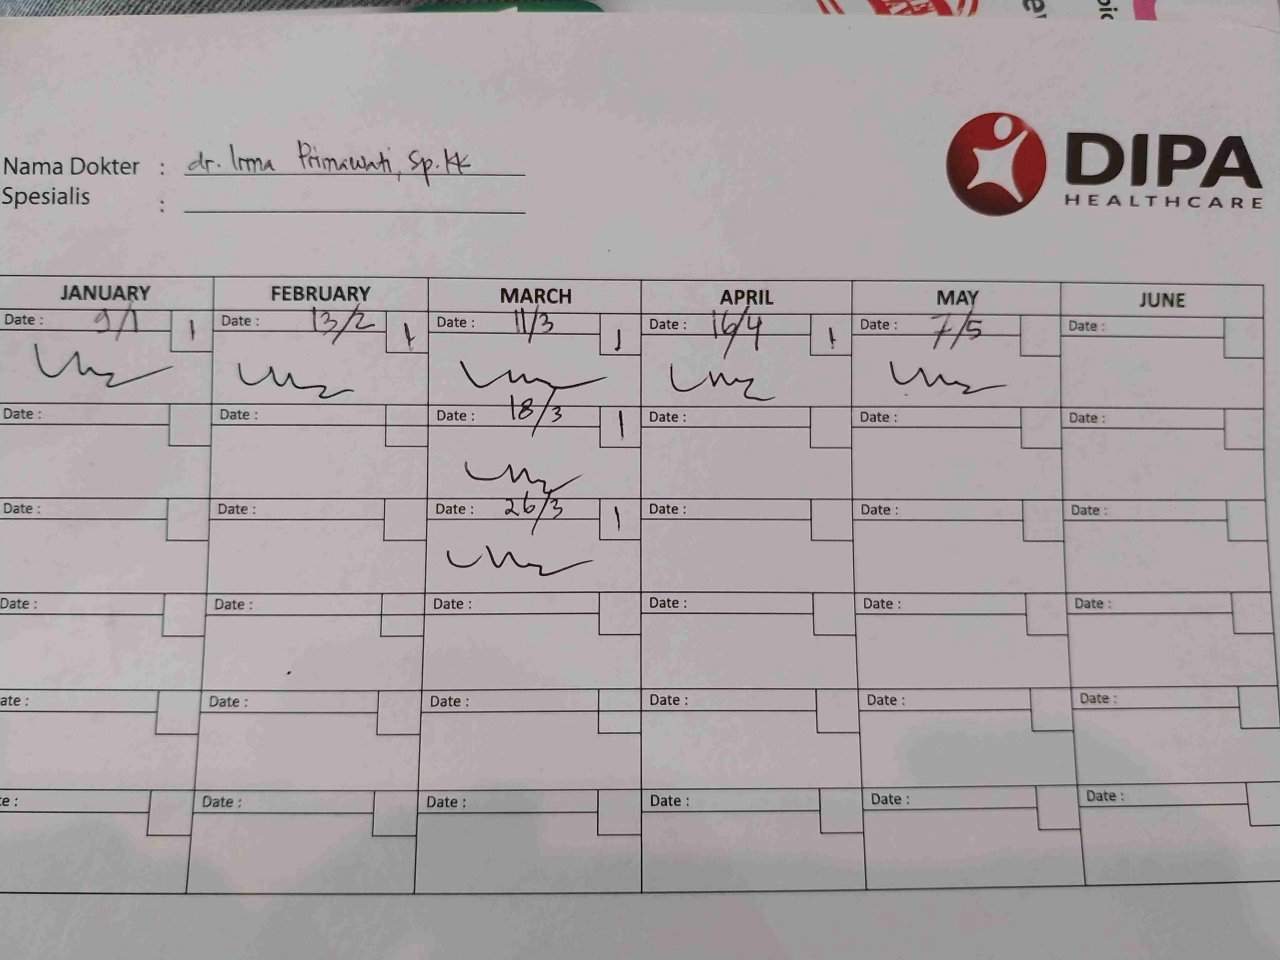 DIPA
HEALTHCARE
Nama Dokter : dr. Irma Primawati, Sp.KK
Spesialis :
JANUARY FEBRUARY MARCH APRIL MAY JUNE
Date : 9/1 1 Date : 13/2 1 Date : 11/3 1 Date : 16/4 1 Date : 7/5 Date :
Date : Date : Date : 18/3 1 Date : Date : Date :
Date : Date : Date : 26/3 1 Date : Date : Date :
Date : Date : Date : Date : Date : Date :
ate : Date : Date : Date : Date : Date :
te : Date : Date : Date : Date : Date :